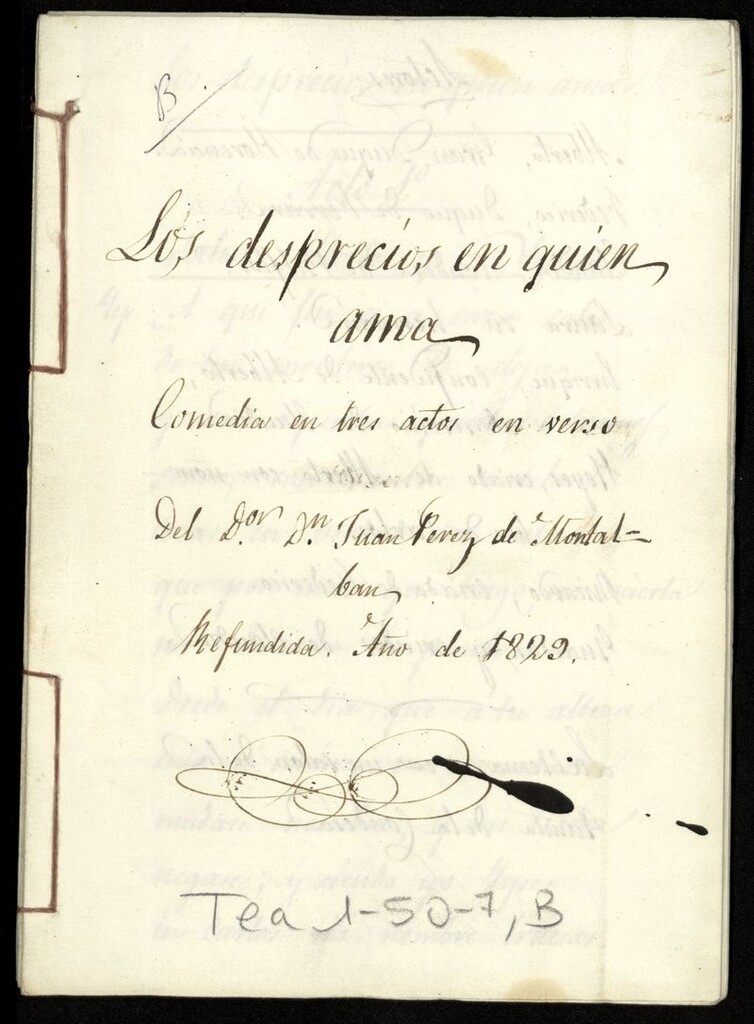 B
Los desprecios en quien
ama
Comedia en tres actos en verso
Del D.or D.n Juan Perez de Montal=
ban
Refundida. Año de 1829.
Tea 1-50-7, B